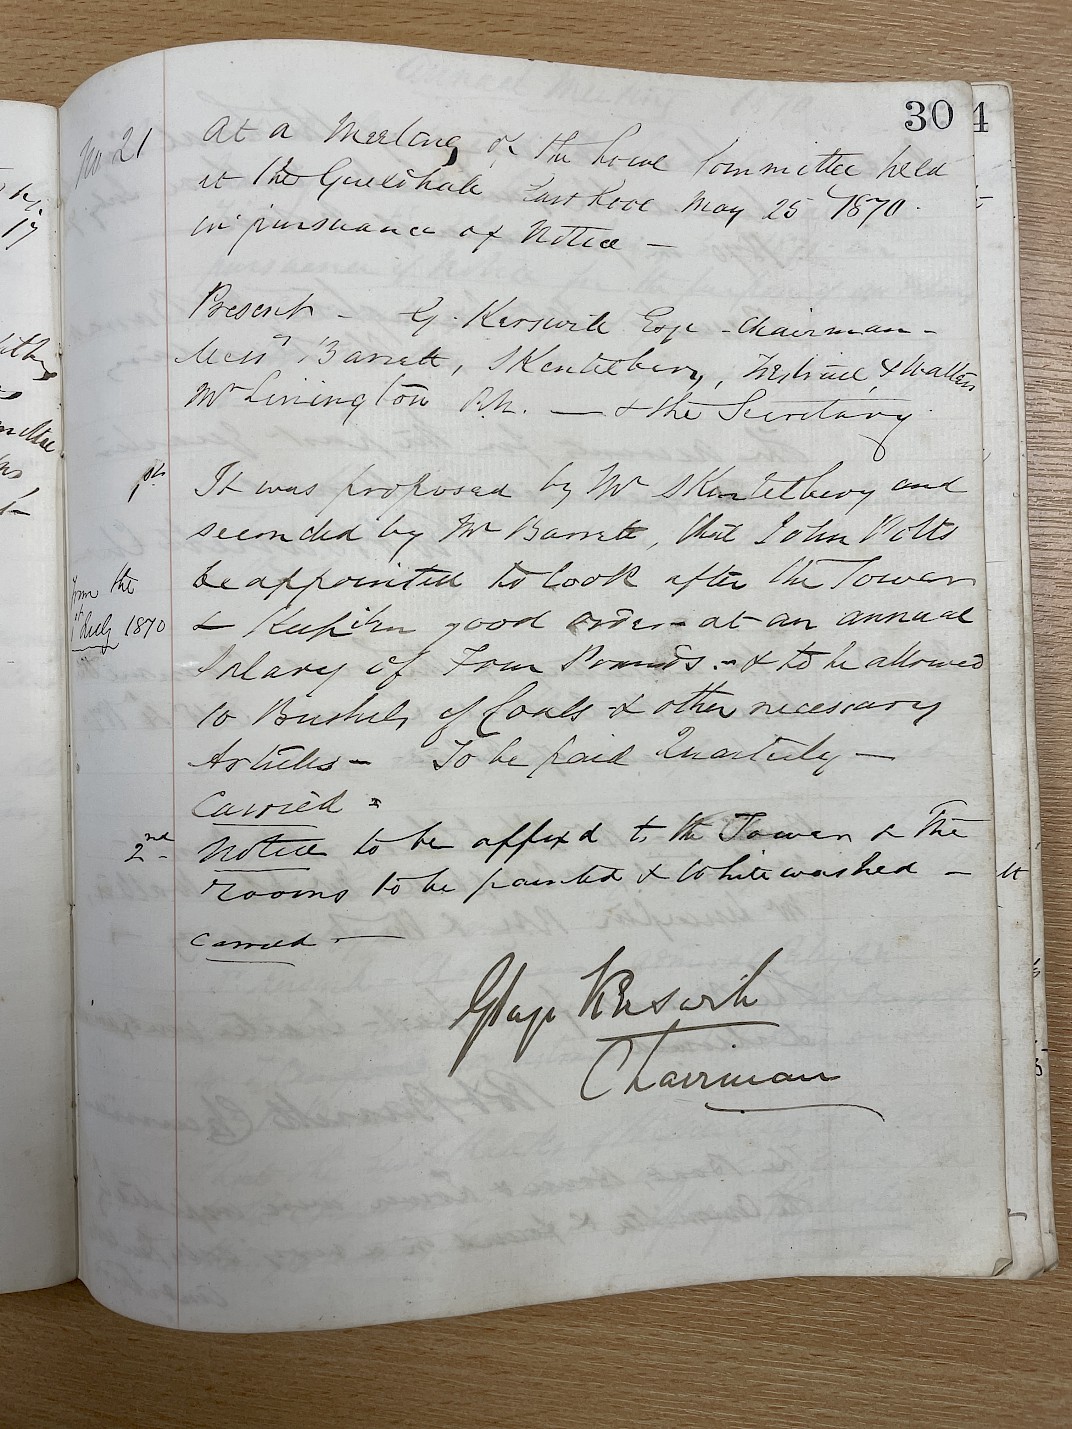 30
No 21
At a Meeting of the Local Committee held
at the Guildhall East Looe May 25 1870.
in pursuance of Notice —
Present — G. Kerswill Esqr — Chairman —
Messrs Barrett, Skentelbery, & Walters
Mr Linington R.N. — & the Secretary.
1st
It was proposed by Mr Skentelbery and
seconded by Mr Barrett, that John Potts
be appointed to look after the Tower
From the
1st July 1870
& Keep in good order — at an annual
Salary of Four Pounds. — & to be allowed
10 Bushels of Coals & other necessary
Articles — To be paid Quarterly —
Carried
2nd
Notice to be affixd to the Tower & the
rooms to be painted & whitewashed —
Carried —
George Kerswill
Chairman